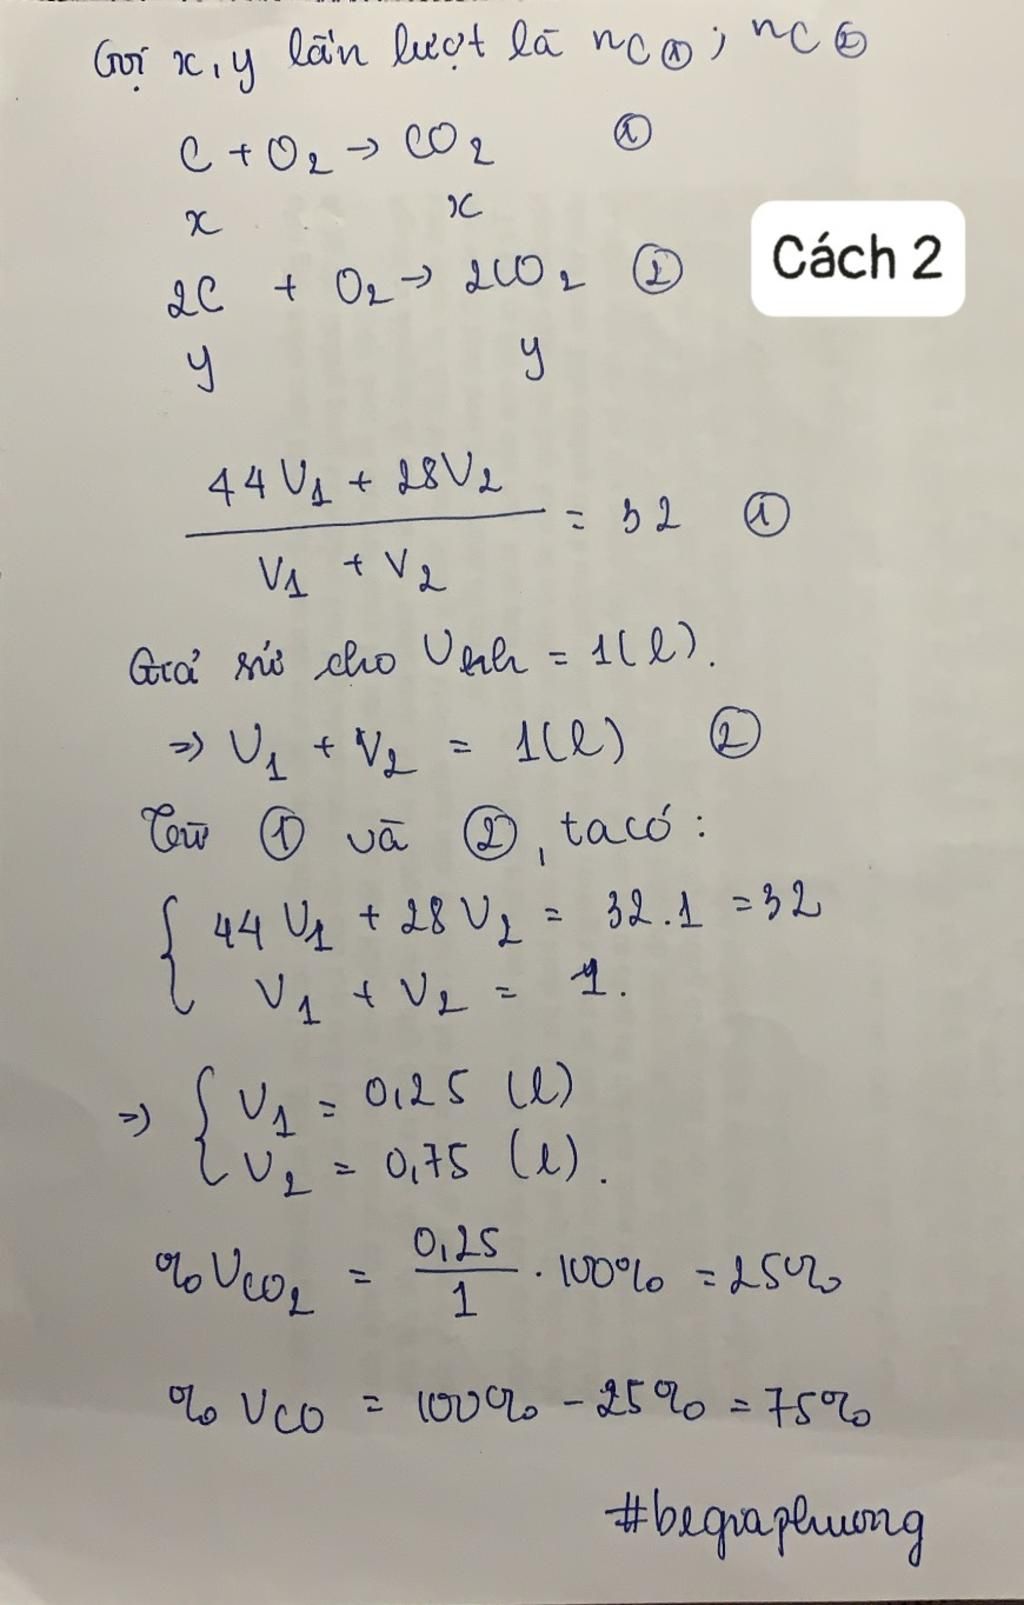 Gọi x, y lần lượt là nC①; nC②
C + O₂ → CO₂ ①
x x
Cách 2
2C + O₂ → 2CO₂ ②
y y
44V₁ + 28V₂
———— = 32 ①
V₁ + V₂
Giả sử cho Vhh = 1(l).
=> V₁ + V₂ = 1(l) ②
Từ ① và ②, ta có:
{ 44V₁ + 28V₂ = 32.1 = 32
V₁ + V₂ = 1.
=> { V₁ = 0,25 (l)
V₂ = 0,75 (l).
%VCO₂ = 0,25/1 . 100% = 25%
%VCO = 100% - 25% = 75%
#begiaphuong